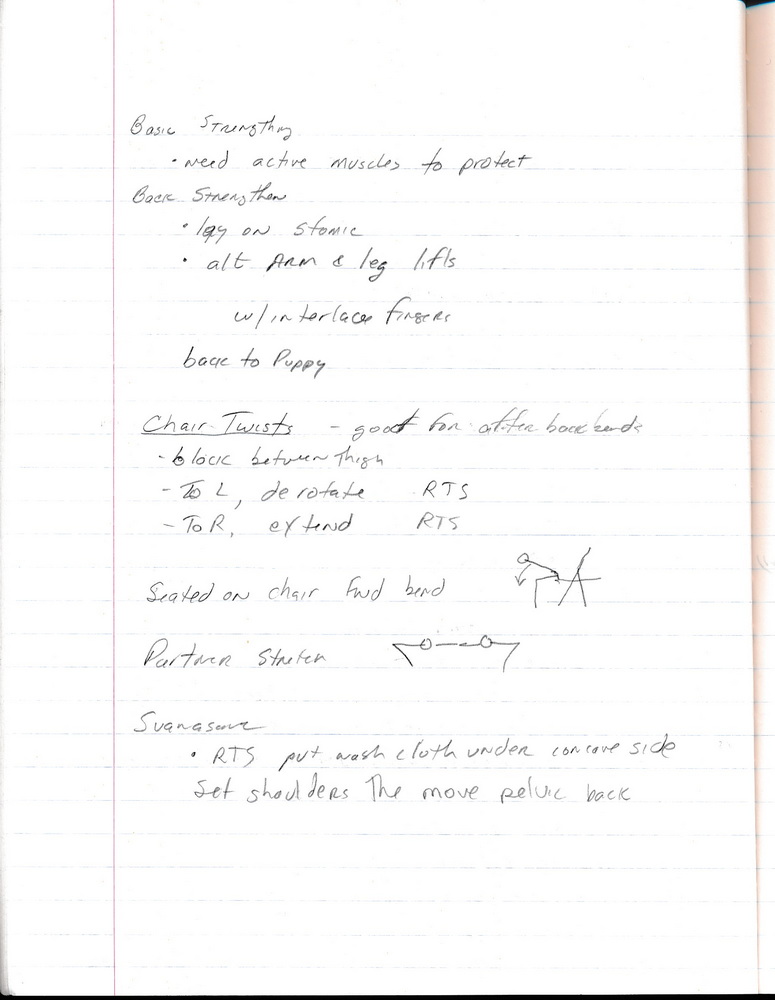 Basic Strengthng
• need active muscles to protect
Back Strengthen
• lay on stomic
• alt ARM & leg lifts
w/ interlace fingers
back to Puppy
Chair Twists - good for after backbends
- block between thigh
- To L, derotate RTS
- To R, extend RTS
Seated on chair Fwd bend
Partner Stretch
• RTS put wash cloth under concave side
Set shoulders The move pelvic back